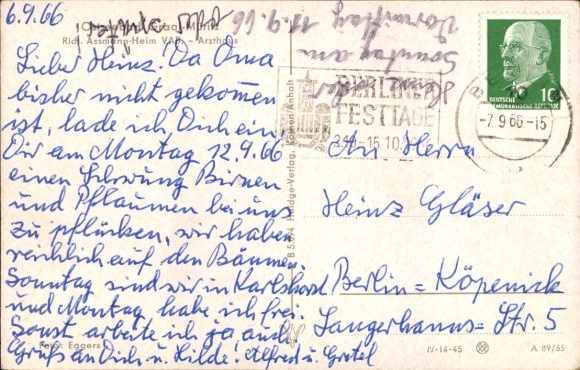 6.9.66
Graal-Müritz
Rich. Assmann-Heim VAB - Arzthaus
Lieber Heinz. Da Oma
bisher nicht gekommen
ist, lade ich Dich ein,
Dir am Montag 12.9.66
einen Schwung Birnen
und Pflaumen bei uns
zu pflücken, wir haben
reichlich auf den Bäumen.
Sonntag sind wir in Karlshorst
und Montag habe ich frei.
Sonst arbeite ich ja auch
Gruß an Dich u. Hilde. Alfred u. Gretel
Foto: Eggers
Vormittag 11.9.66
Sonntag am
BERLINER
FESTTAGE
-15.10.
DEUTSCHE
DEMOKRATISCHE REPUBLIK
10
-7.9.66-15
An Herrn
Heinz Gläser
Berlin-Köpenick
Langerhanns-Str. 5
IV-14-45
A 89/55